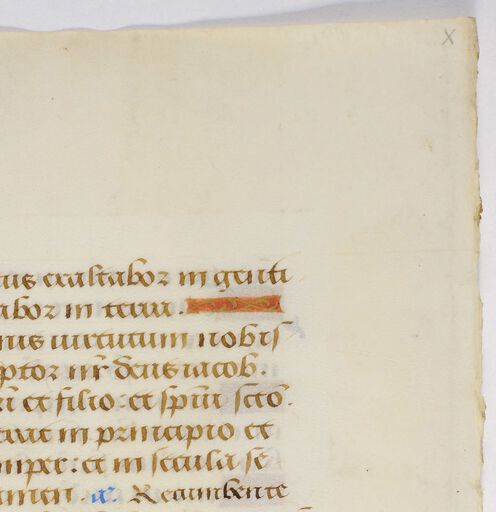 X
us exaltabor in genti
abor in terra.
nus uirtutum nobis
ptor nr̄ deus iacob.
ri et filio: et spiritui scto.
erat in principio et
mper: et in secula se
amen. a. Recumbente